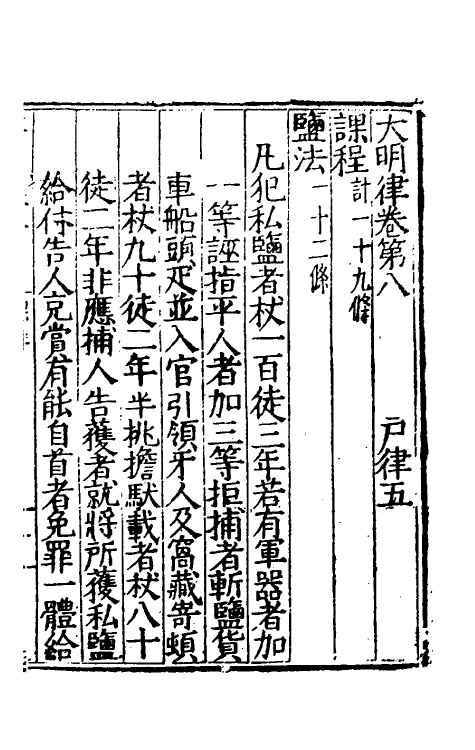 大明律卷第八 戶律五
課程計一十九條
鹽法一十二條
凡犯私鹽者杖一百徒三年若有軍器者加
一等誣指平人者加三等拒捕者斬鹽貨
車船頭疋並入官引領牙人及窩藏寄頓
者杖九十徒二年半挑擔馱載者杖八十
徒二年非應捕人告獲者就將所獲私鹽
給付告人充賞有能自首者免罪一體給